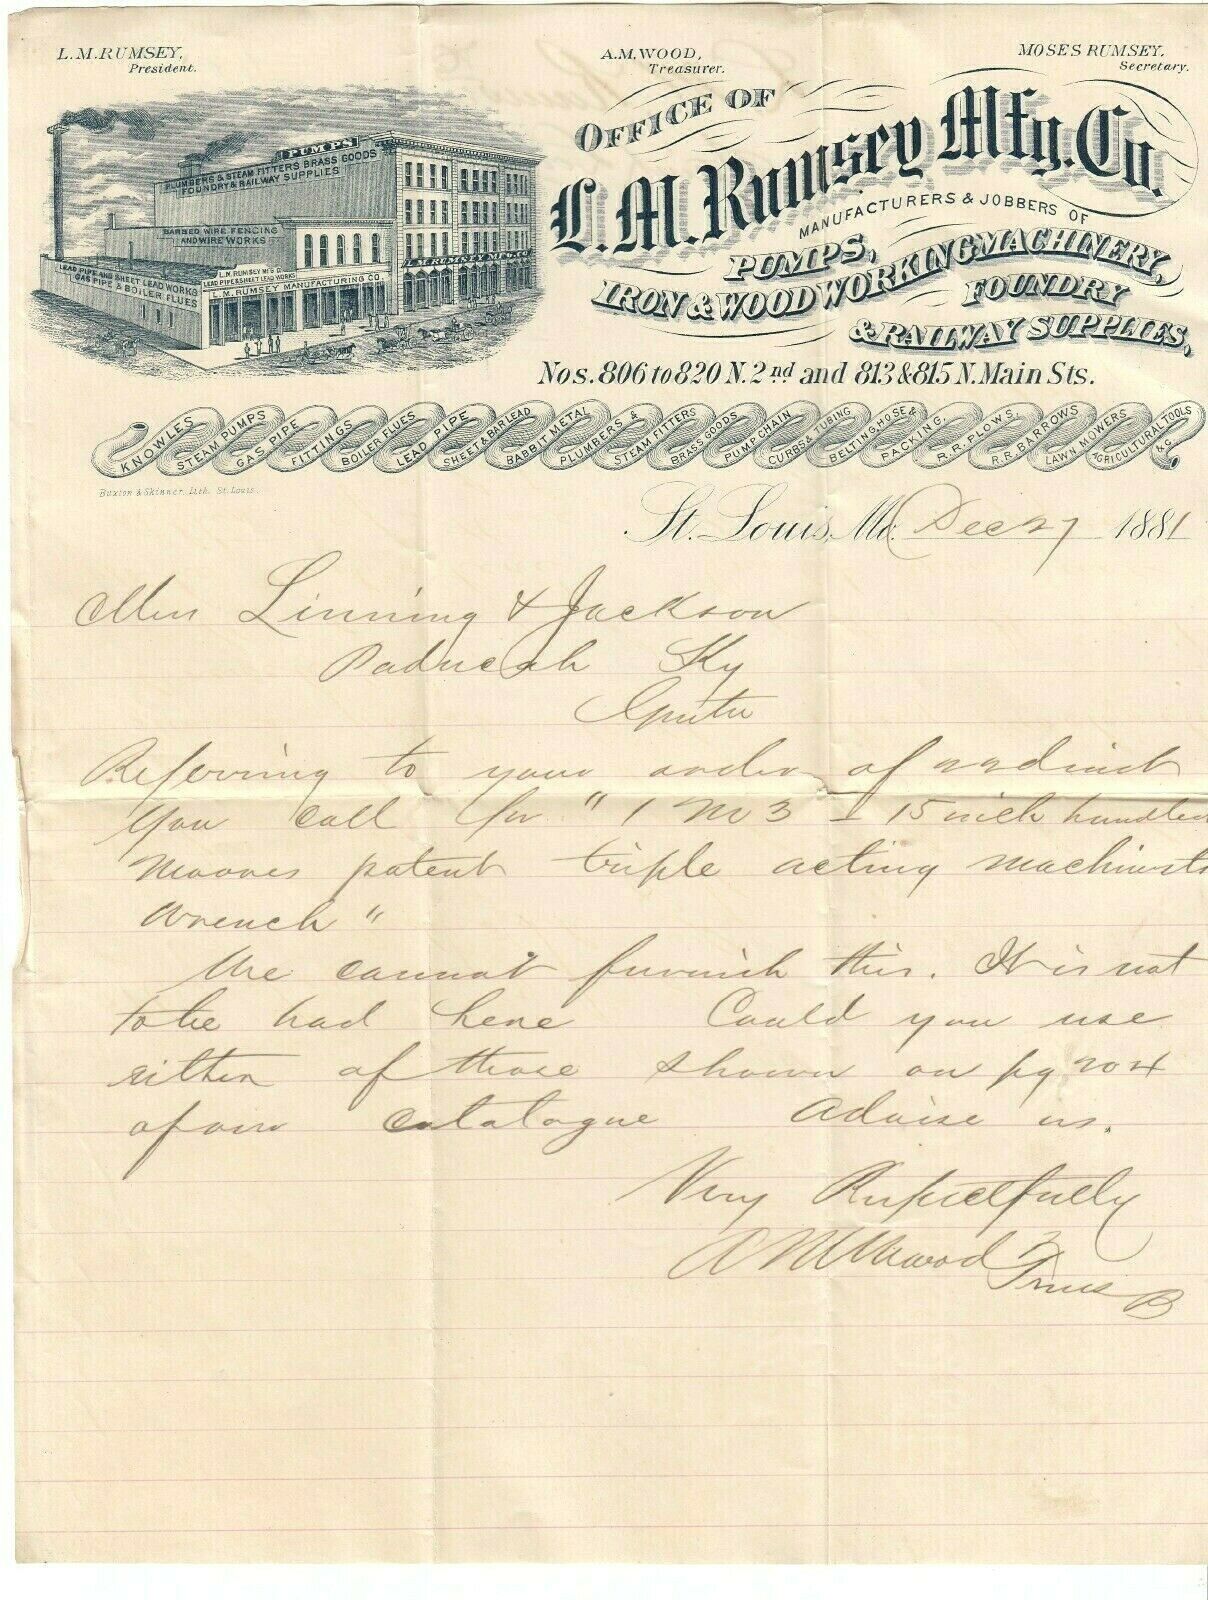 L.M. RUMSEY,
President.
A.M. WOOD,
Treasurer.
MOSES RUMSEY,
Secretary.
PUMPS
PLUMBERS & STEAM FITTERS BRASS GOODS
FOUNDRY & RAILWAY SUPPLIES
BARBED WIRE FENCING
AND WIRE WORKS
LEAD PIPE AND SHEET LEAD WORKS
GAS PIPE & BOILER FLUES
L.M. RUMSEY M'F'G CO
LEAD PIPE & SHEET LEAD WORKS
L.M. RUMSEY MANUFACTURING CO.
L.M. RUMSEY MFG. CO.
OFFICE OF
L.M. Rumsey Mfg. Co.
MANUFACTURERS & JOBBERS OF
PUMPS,
IRON & WOOD WORKING MACHINERY,
FOUNDRY
& RAILWAY SUPPLIES,
Nos. 806 to 820 N. 2nd and 813 & 815 N. Main Sts.
KNOWLES STEAM PUMPS GAS PIPE FITTINGS BOILER FLUES LEAD PIPE SHEET & BAR LEAD BABBIT METAL PLUMBERS & STEAM FITTERS BRASS GOODS PUMP CHAIN CURBS & TUBING BELTING, HOSE & PACKING R.R. PLOWS, R.R. BARROWS LAWN MOWERS AGRICULTURAL TOOLS &C.
Buxton & Skinner, Lith. St. Louis.
St. Louis, Mo. Dec 27 1881
Linning & Jackson
Paducah Ky
Gents
Referring to your order of 22d inst
you call for "1 No 3 15 inch handled
Moores patent triple acting machinists
wrench"
We cannot furnish this. It is not
to be had here Could you use
either of those shown on pg 204
of our catalogue Advise us.
Very Respectfully
A M Wood
Treas
B